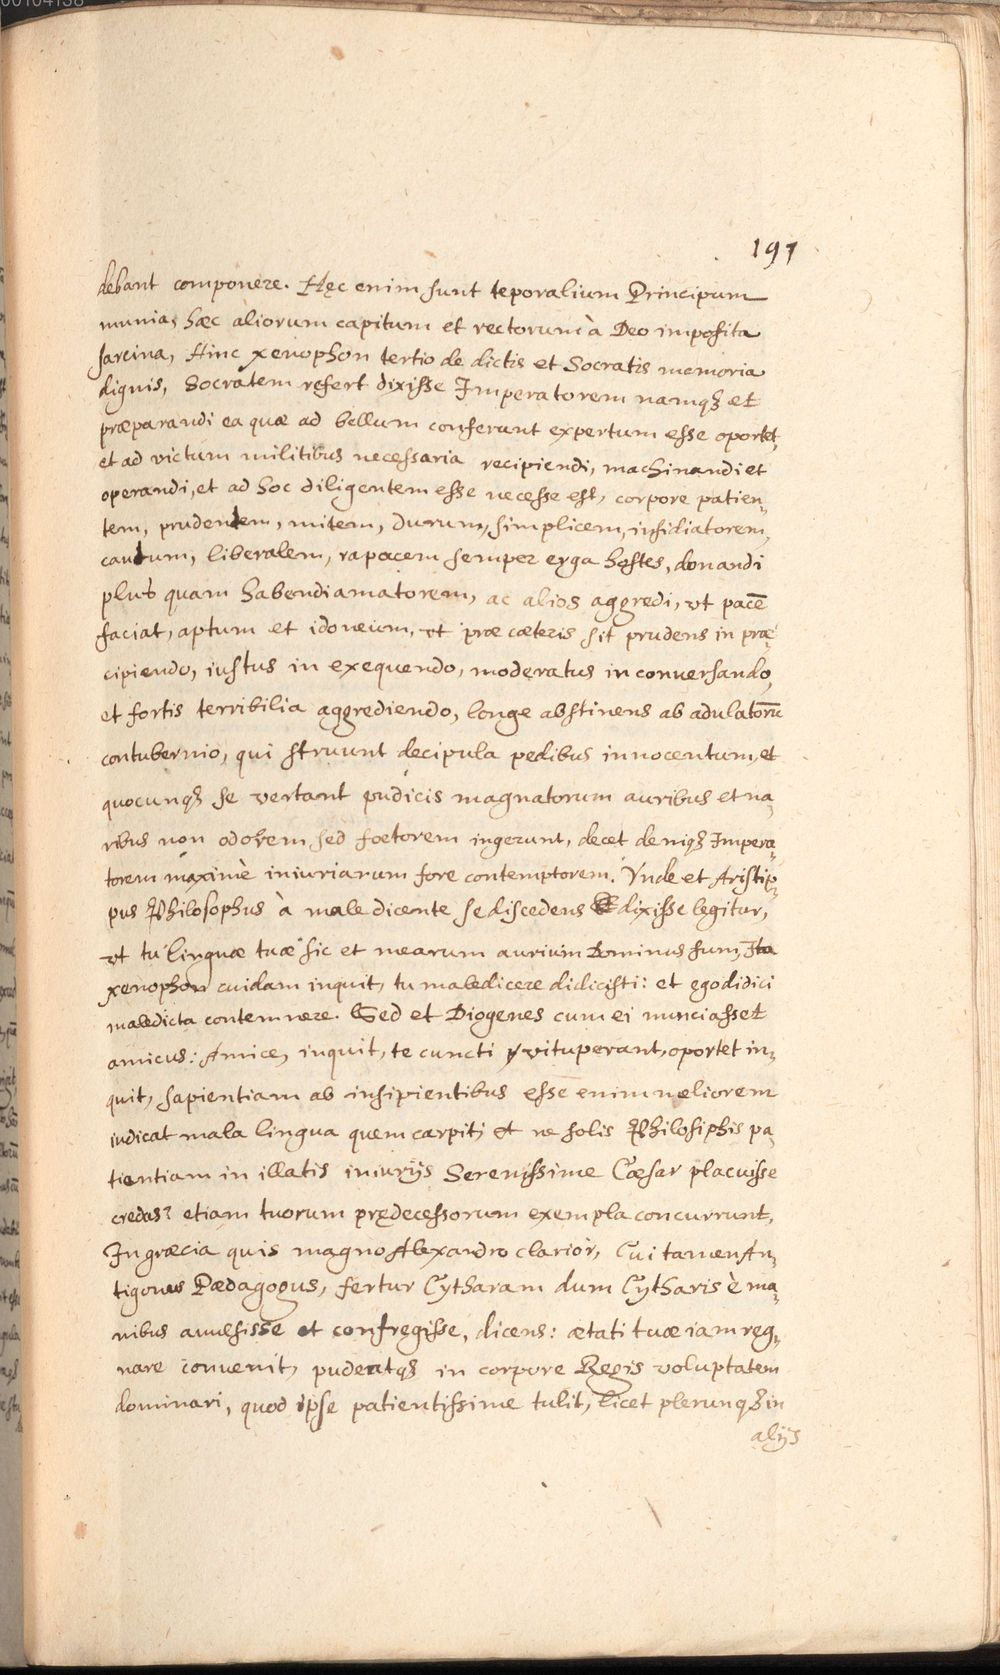 00104138
197
debant componere. Hęc enim sunt teporalium Principum
munia, hæc aliorum capitum et rectorum à Deo imposita
sarcina, Hinc xenophon tertio de dictis et Socratis memoria
dignis, Socratem refert dixisse Imperatorem namqȝ et
præparandi ea quæ ad bellum conferunt expertum esse oportet,
et ad victum militibus necessaria recipiendi, machinandi et
operandi, et ad hoc diligentem esse necesse est, corpore patien,
tem, prudentem, mitem, durum, simplicem, insidiatorem,
cautum, liberalem, rapacem semper erga hostes, donandi
plus quam habendi amatorem, ac alios aggredi, vt pacē
faciat, aptum et idoneum, vt præ cæteris sit prudens in præ
cipiendo, iustus in exequendo, moderatus in conuersando,
et fortis terribilia aggrediendo, longe abstinens ab adulatorū
contubernio, qui struunt decipula pedibus innocentum, et
quocunqȝ se vertant pudicis magnatorum auribus et na,
ribus non odorem sed foetorem ingerunt, decet deniqȝ Impera,
torem maximè iniuriarum fore contemptorem. Vnde et Aristip,
pus Philosophus à male dicente se discedens dixisse legitur,
vt tu linguæ tuæ sic et mearum aurium Dominus sum, Ita
xenophon cuidam inquit, tu maledicere didicisti: et ego didici
maledicta contemnere. Sed et Diogenes cum ei nunciasset
amicus: Amice, inquit, te cuncti vituperant, oportet in,
quit, sapientiam ab insipientibus esse enim meliorem
iudicat mala lingua quem carpit; et ne solis Philosiphis pa,
tientiam in illatis iniurijs Serenissime Cæsar placuisse
credas? etiam tuorum prędecessorum exempla concurrunt,
In græcia quis magno Alexandro clarior, Cui tamen An,
tigonus Pædagogus, fertur Cytharam dum Cytharis è ma,
nibus auulsisse et confregisse, dicens: ætati tuæ iam reg,
nare conuenit, pudeatqȝ in corpore Regis voluptatem
dominari, quod ipse patientissime tulit, licet plerunqȝ in
alijs